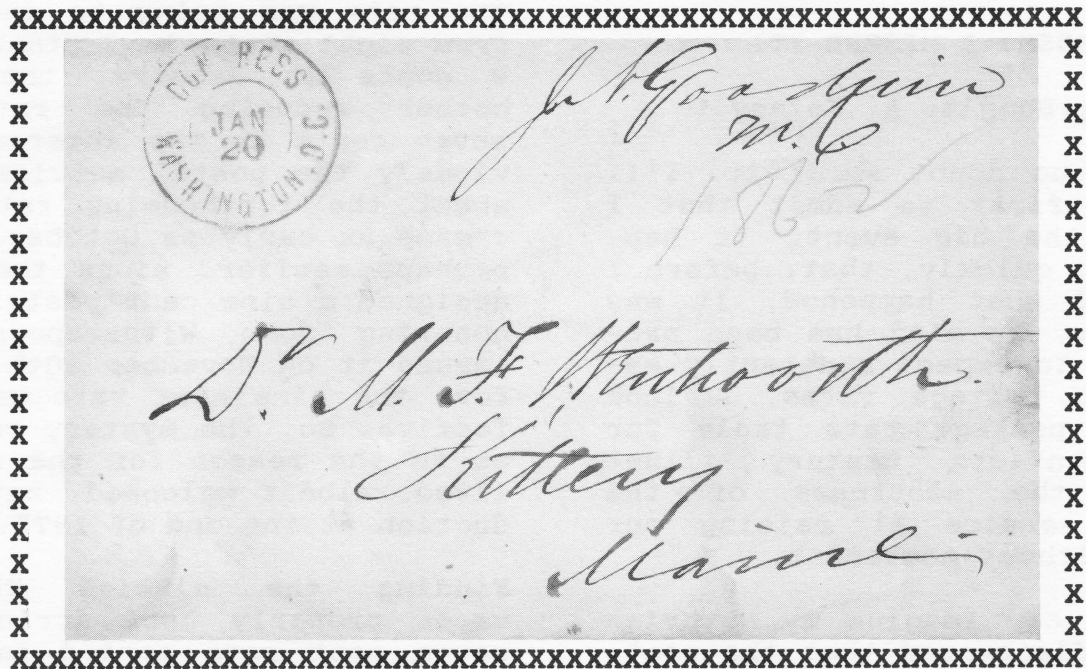 CONGRESS
JAN
20
WASHINGTON, D.C.
Jn N. Goodwin
M.C
1862
Dr. M. F. Wentworth.
Kittery
Maine